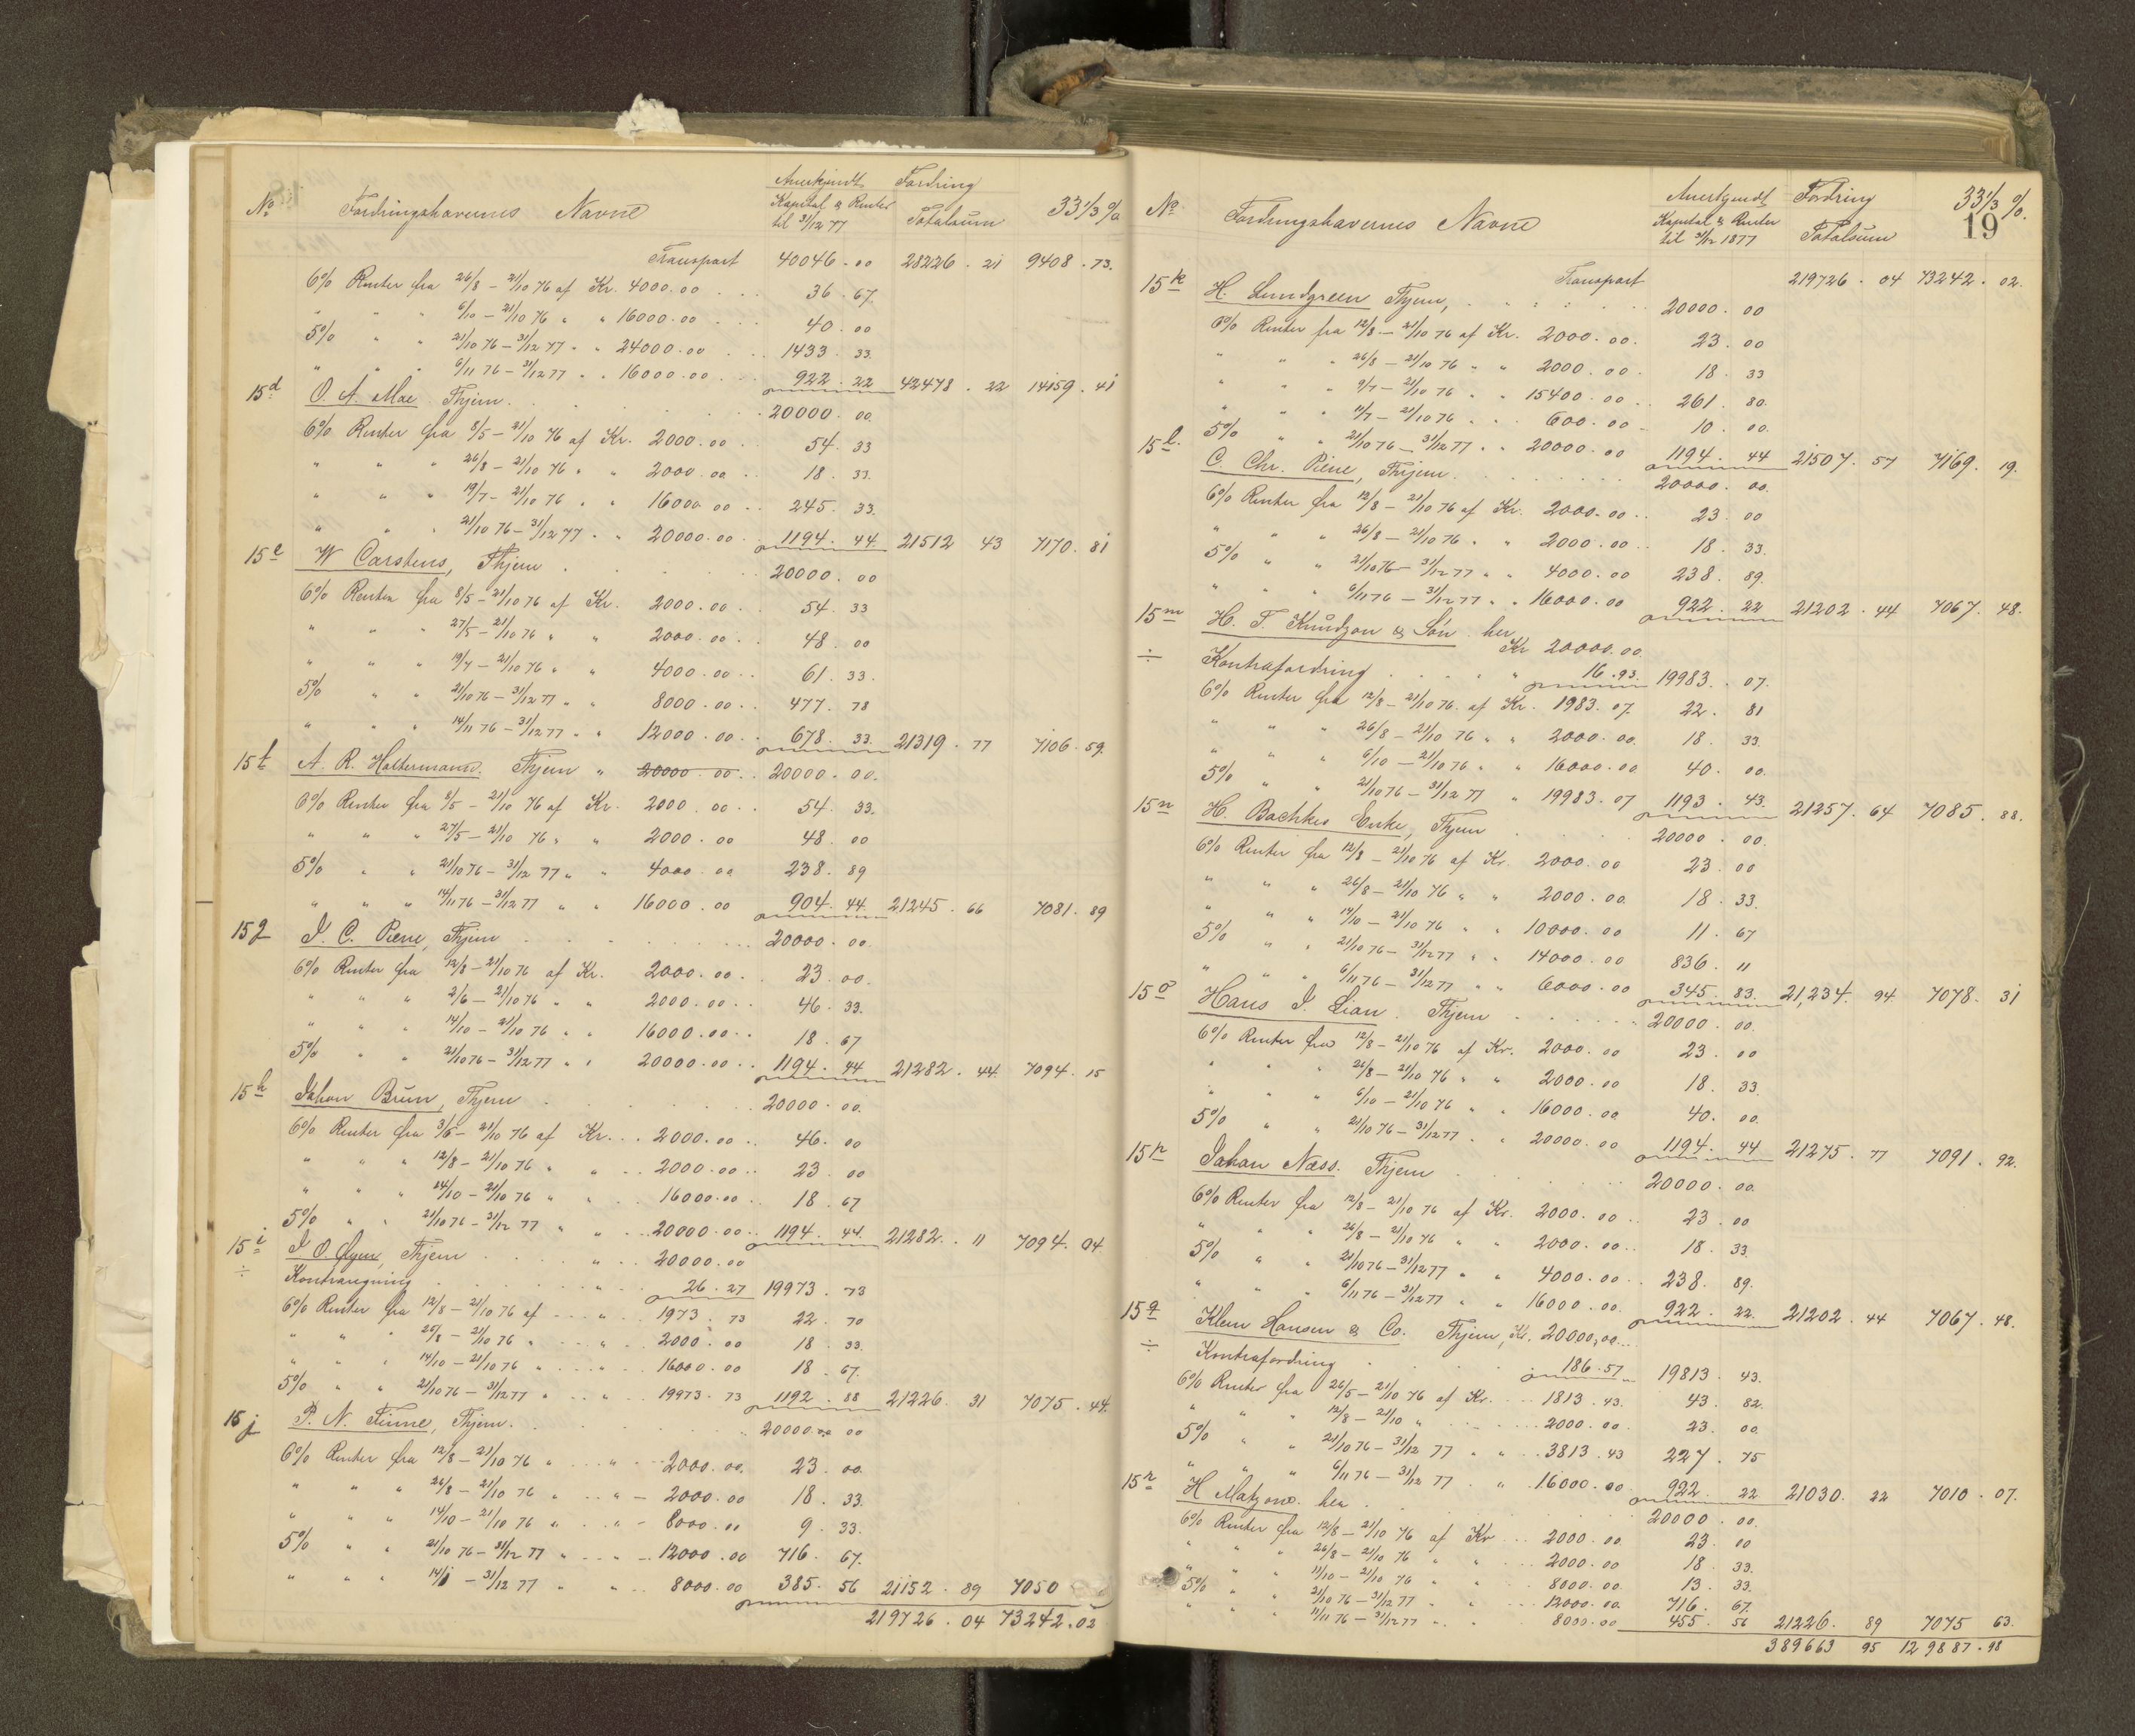 No Fordringshavernes Navne Anerkjendt Fordring 33 1/3 %
Kapital & Renter til 31/12 77 Totalsum
Transport 40046.00 28226.21 9408.73.
6% Renter fra 26/8 - 21/10 76 af Kr. 4000.00 36.67.
" " " 6/10 - 21/10 76 " " 16000.00 40.00
5% " " 21/10 76 - 31/12 77 " " 24000.00 1433.33.
" " " 6/11 76 - 31/12 77 " " 16000.00 922.22 42478.22 14159.41
15d O. A. Moe Thjem. 20000.00.
6% Renter fra 8/5 - 21/10 76 af Kr. 2000.00 54.33
" " " 26/8 - 21/10 76 " " 2000.00 18.33.
" " " 19/7 - 21/10 76 " " 16000.00 245.33.
" " " 21/10 76 - 31/12 77 " " 20000.00 1194.44. 21512.43 7170.81
15e W Carstens, Thjem 20000.00
6% Renter fra 8/5 - 21/10 76 af Kr. 2000.00 54.33
" " " 27/5 - 21/10 76 " " 2000.00 48.00
" " " 19/7 - 21/10 76 " " 4000.00 61.33.
5% " " 21/10 76 - 31/12 77 " " 8000.00 477.78
" " " 14/11 76 - 31/12 77 " " 12000.00 678.33. 21319.77 7106.59.
15f A. R. Holtermann. Thjem " 20000.00 20000.00.
6% Renter fra 8/5 - 21/10 76 af Kr. 2000.00 54.33.
" " " 27/5 - 21/10 76 " " 2000.00 48.00
5% " " 21/10 76 - 31/12 77 " " 4000.00 238.89
" " " 14/11 76 - 31/12 77 " " 16000.00 904.44. 21245.66 7081.89
15g I. C. Piene, Thjem 20000.00.
6% Renter fra 12/8 - 21/10 76 af Kr. 2000.00 23.00.
" " " 2/6 - 21/10 76 " " 2000.00 46.33.
" " " 14/10 - 21/10 76 " " 16000.00 18.67
5% " " 21/10 76 - 31/12 77 " " 20000.00 1194.44 21282.44. 7094.15
15h Johan Brun, Thjem 20000.00.
6% Renter fra 3/6 - 21/10 76 af Kr. 2000.00 46.00
" " " 12/8 - 21/10 76 " " 2000.00 23.00
" " " 14/10 - 21/10 76 " " 16000.00 18.67
5% " " 21/10 76 - 31/12 77 " " 20000.00 1194.44. 21282.11 7094.04.
15i I O Øyen, Thjem " 20000.00
÷ Kontraregning " 26.27 19973.73
6% Renter fra 12/8 - 21/10 76 af " 1973.73 22.70
" " " 26/8 - 21/10 76 " " 2000.00 18.33.
" " " 14/10 - 21/10 76 " " 16000.00 18.67.
5% " " 21/10 76 - 31/12 77 " " 19973.73 1192.88 21226.31 7075.44.
15j P. N. Finne, Thjem. 20000.00
6% Renter fra 12/8 - 21/10 76 " " 2000.00. 23.00.
" " " 26/8 - 21/10 76 " " 2000.00 18.33.
" " " 14/10 - 21/10 76 " " 8000.00 9.33.
5% " " 21/10 76 - 31/12 77 " " 12000.00 716.67.
" " " - 31/12 77 " " 8000.00 385.56 21152.89 7050
219726.04 73242.02
No. Fordringshavernes Navne Anerkjendt Fordring 33 1/3 %.
Kapital & Renter til 31/12 1877 Totalsum 19
Transport 219726.04 73242.02.
15k H. Lundgreen Thjem, 20000.00
6% Renter fra 12/8 - 21/10 76 af Kr. 2000.00. 23.00
" " " 26/8 - 21/10 76 " " 2000.00 18.33
" " " 9/7 - 21/10 76 " " 15400.00 261.80.
" " " 11/7 - 21/10 76 " " 600.00 10.00.
5% " " 21/10 76 - 31/12 77 " " 20000.00 1194.44 21507.57 7169.19.
15l. C. Chr. Piene, Thjem. 20000.00.
6% Renter fra 12/8 - 21/10 76 af Kr. 2000.00 23.00
" " " 26/8 - 21/10 76 " " 2000.00 18.33.
5% " " 21/10 76 - 31/12 77 " " 4000.00 238.89.
" " " 6/11 76 - 31/12 77 " " 16000.00 922.22 21202.44 7067.48.
15m H. F. Knudzon & Søn her Kr 20000.00.
÷ Kontrafordring " 16.93. 19983.07.
6% Renter fra 12/8 - 21/10 76. af Kr. 1983.07. 22.81
" " " 26/8 - 21/10 76 " " 2000.00. 18.33.
" " " 6/10 - 21/10 76 " " 16000.00 40.00.
5% " " 21/10 76 - 31/12 77 " 19983.07 1193.43. 21257.64 7085.88.
15n H. Bachkes Enke, Thjem 20000.00.
6% Renter fra 12/8 - 21/10 76 af Kr. 2000.00 23.00
" " " 26/8 - 21/10 76 " " 2000.00 18.33.
" " " 14/10 - 21/10 76 " " 10000.00 11.67
5% " " 21/10 76 - 31/12 77 " " 14000.00 836.11
" " " 6/11 76 - 31/12 77 " " 6000.00 345.83. 21,234.94. 7078.31
15o Hans I. Lian. Thjem 20000.00.
6% Renter fra 12/8 - 21/10 76 af Kr. 2000.00 23.00
" " " 26/8 - 21/10 76 " " 2000.00 18.33.
" " " 6/10 - 21/10 76 " " 16000.00 40.00.
5% " " 21/10 76 - 31/12 77 " " 20000.00 1194.44 21275.77 7091.92.
15p Johan Næss. Thjem 20000.00.
6% Renter fra 12/8 - 21/10 76 af Kr. 2000.00 23.00
" " " 26/8 - 21/10 76 " " 2000.00 18.33.
5% " " 21/10 76 - 31/12 77 " " 4000.00 238.89.
" " " 6/11 76 - 31/12 77 " " 16000.00. 922.22. 21202.44 7067.48.
15q Klem Hansen & Co. Thjem, Kr. 20000,00
÷ Kontrafordring 186.57 19813.43.
6% Renter fra 26/5 - 21/10 76 af Kr. 1813.43. 43.82.
" " " 12/8 - 21/10 " 2000.00 23.00.
5% " " 21/10 76 - 31/12 77 " " 3813.43 227.75
" " " 6/11 76 - 31/12 77 " " 16000.00 922.22 21030.22 7010.07.
15r H Matzow. her 20000.00.
6% Renter fra 12/8 - 21/10 76 af Kr 2000.00 23.00
" " " 26/8 - 21/10 76 " " 2000.00 18.33.
" " " 11/10 - 21/10 76 " " 8000.00 13.33.
5% " " 21/10 76 - 31/12 77 " " 12000.00 716.67.
" " " 11/11 76 - 31/12 77 " " 8000.00 455.56 21226.89 7075 63.
389663 95 129887.98